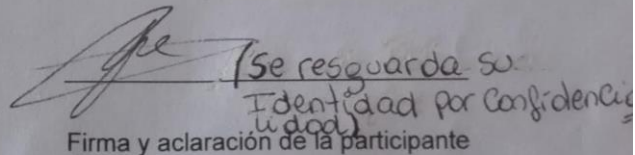 (Se resguarda su
Identidad por Confidencia
lidad)
Firma y aclaración de la participante